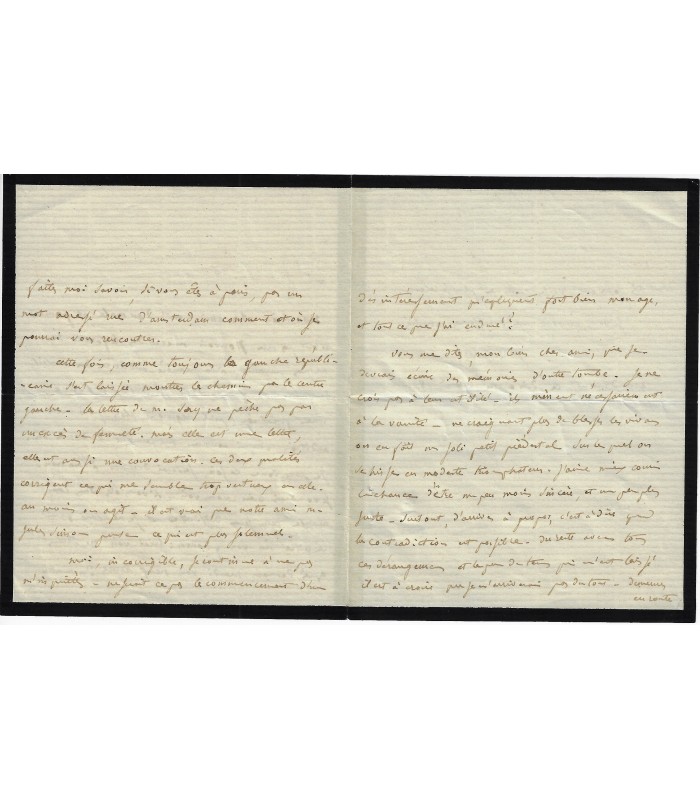 faites moi savoir, si vous êtes à paris, par un
mot adressé rue d'amsterdam comment et où je
pourrai vous rencontrer.
cette fois, comme toujours la gauche républi-
-caine s'est laissé montrer le chemin par le centre
gauche - la lettre de m. Say ne pèche pas par
un excès de fermeté. mais elle est une lettre,
elle est aussi une convocation. ces deux qualités
corrigent ce qui me semble trop vertueux en elle.
au moins on agit - il est vrai que notre ami m.
jules Simon pense - ce qui est plus solennel.
moi, incorrigible, je continue à ne pas
m'inquiéter - ne serait ce pas le commencement d'un
désintéressement qu'expliquent fort bien mon age,
et tout ce que j'ai enduré ?
vous me dites, mon très cher ami, que je
devrais écrire des mémoires d'outre tombe. je ne
crois pas à leur utilité - ils mènent nécessairement
à la vanité - ne craignant plus de blesser les vivans
on en fait un joli petit piédestal sur lequel on
se hisse en modeste triomphateur. j'aime mieux courir
la chance d'être un peu moins sincère et un peu plus
juste - surtout, d'arriver à propos, c'est à dire quand
la contradiction est possible - du reste avec tous
ces dérangemens et le peu de tems qui m'est laissé
il est à croire que je n'arriverai pas du tout - demeurer
en route